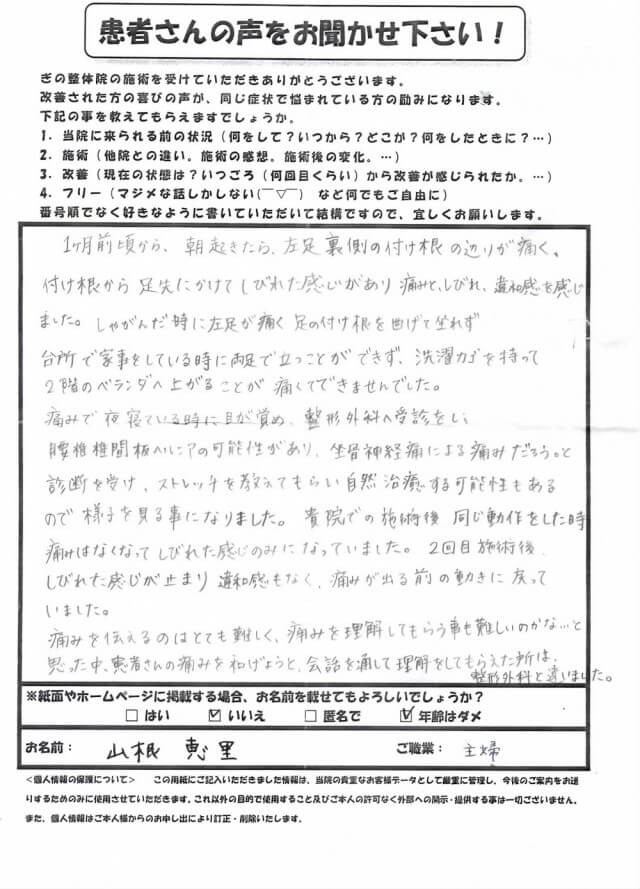 患者さんの声をお聞かせ下さい！
ぎの整体院の施術を受けていただきありがとうございます。
改善された方の喜びの声が、同じ症状で悩まれている方の励みになります。
下記の事を教えてもらえますでしょうか。
1．当院に来られる前の状況（何をして？いつから？どこが？何をしたときに？…）
2．施術（他院との違い。施術の感想。施術後の変化。…）
3．改善（現在の状態は？いつごろ（何回目くらい）から改善が感じられたか。…）
4．フリー（マジメな話しかしない(￣▽￣)　など何でもご自由に）
番号順でなく好きなように書いていただいて結構ですので、宜しくお願いします。
1ヶ月前頃から、朝起きたら、左足裏側の付け根の辺りが痛く。
付け根から足先にかけてしびれた感じがあり痛みと、しびれ、違和感を感じ
ました。しゃがんだ時に左足が痛く足の付け根を曲げて坐れず
台所で家事をしている時に両足で立つことができず、洗濯カゴを持って
2階のベランダへ上がることが痛くてできませんでした。
痛みで夜寝ている時に目が覚め、整形外科へ受診をし、
腰椎椎間板ヘルニアの可能性があり、坐骨神経痛による痛みだろう。と
診断を受け、ストレッチを教えてもらい自然治癒する可能性もある
ので様子を見る事になりました。貴院での施術後同じ動作をした時
痛みはなくなってしびれた感じのみになっていました。2回目施術後、
しびれた感じが止まり違和感もなく、痛みが出る前の動きに戻って
いました。
痛みを伝えるのはとても難しく、痛みを理解してもらう事も難しいのかな…と
思った中、患者さんの痛みを和げようと、会話を通して理解をしてもらえた所は、
整形外科と違いました。
※紙面やホームページに掲載する場合、お名前を載せてもよろしいでしょうか？
□はい　☑いいえ　□匿名で　☑年齢はダメ
お名前：山根 恵里　ご職業：主婦
＜個人情報の保護について＞　この用紙にご記入いただきました情報は、当院の貴重なお客様データとして厳重に管理し、今後のご案内をお送
りするためのみに使用させていただきます。これ以外の目的で使用すること及びご本人の許可なく外部への開示・提供する事は一切ございません。
また、個人情報はご本人様からのお申し出により訂正・削除いたします。